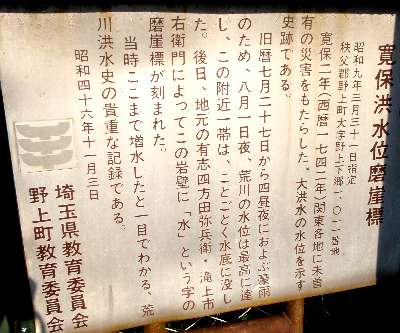 寛保洪水位磨崖標
昭和九年三月三十一日指定
秩父郡野上町大字野上下郷一、〇二一番地
寛保二年(西暦一七四二年)関東各地に未曽
有の災害をもたらした、大洪水の水位を示す
史跡である。
旧暦七月二十七日から四昼夜におよぶ豪雨
のため、八月一日夜、荒川の水位は最高に達
し、この附近一帯は、ことごとく水底に没し
た。後日、地元の有志四方田弥兵衛・滝上市
右衛門によってこの岩壁に「水」という字の
磨崖標が刻まれた。
当時ここまで増水したと一目でわかる、荒
川洪水史の貴重な記録である。
昭和四十六年十一月三日
埼玉県教育委員会
野上町教育委員会